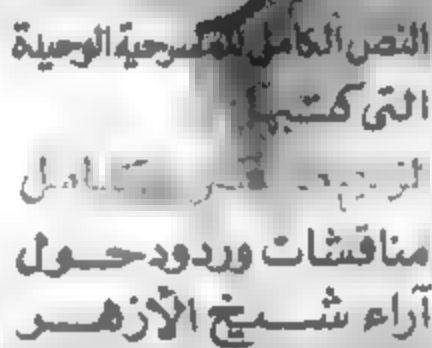 النص الكامل للمسرحية الوحيدة
التى كتبها
مناقشات وردود حول
آراء شيخ الأزهر